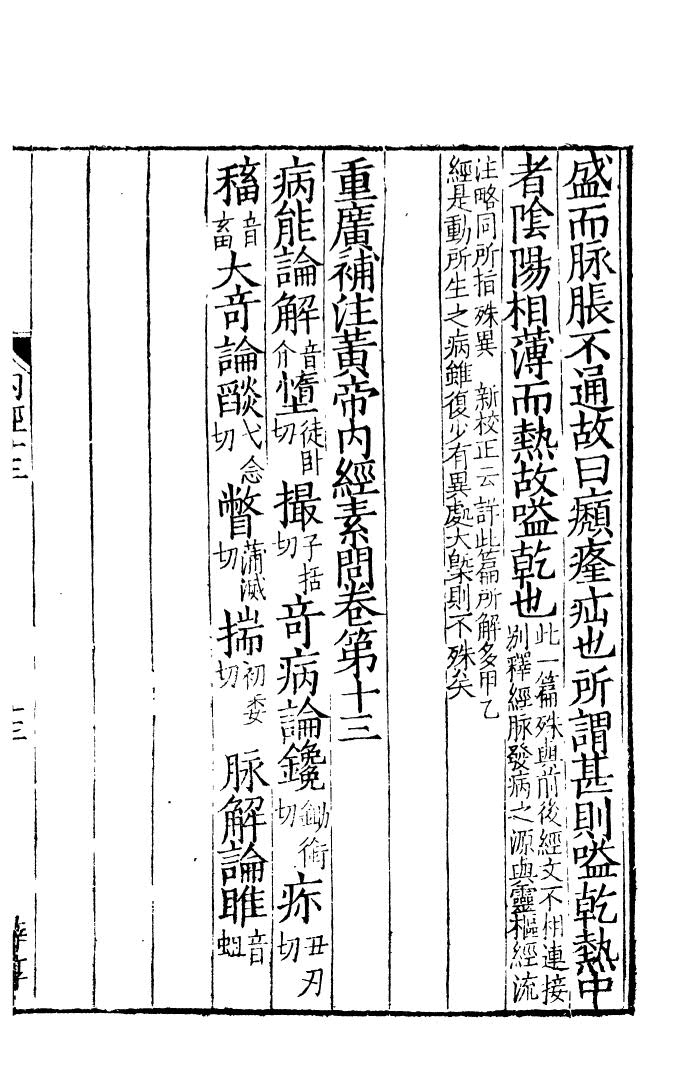 盛而脉脹不通故曰㿗癃疝也所謂甚則嗌乾熱中
者陰陽相薄而熱故嗌乾也
此一篇殊與前後經文不相連接
別釋經脉發病之源與靈樞經流
注略同所指殊異 新校正云詳此篇所解多甲乙
經是動所生之病雖復少有異處大槩則不殊矣
重廣補注黃帝内經素問卷第十三
病能論解音介憜徒卧切 撮子括切 奇病論鑱鋤銜切 疹丑刃切
稸音畜 大奇論燄弋念切 瞥蒲滅切 揣初委切 脉解論雎音蛆
内經十三
十三